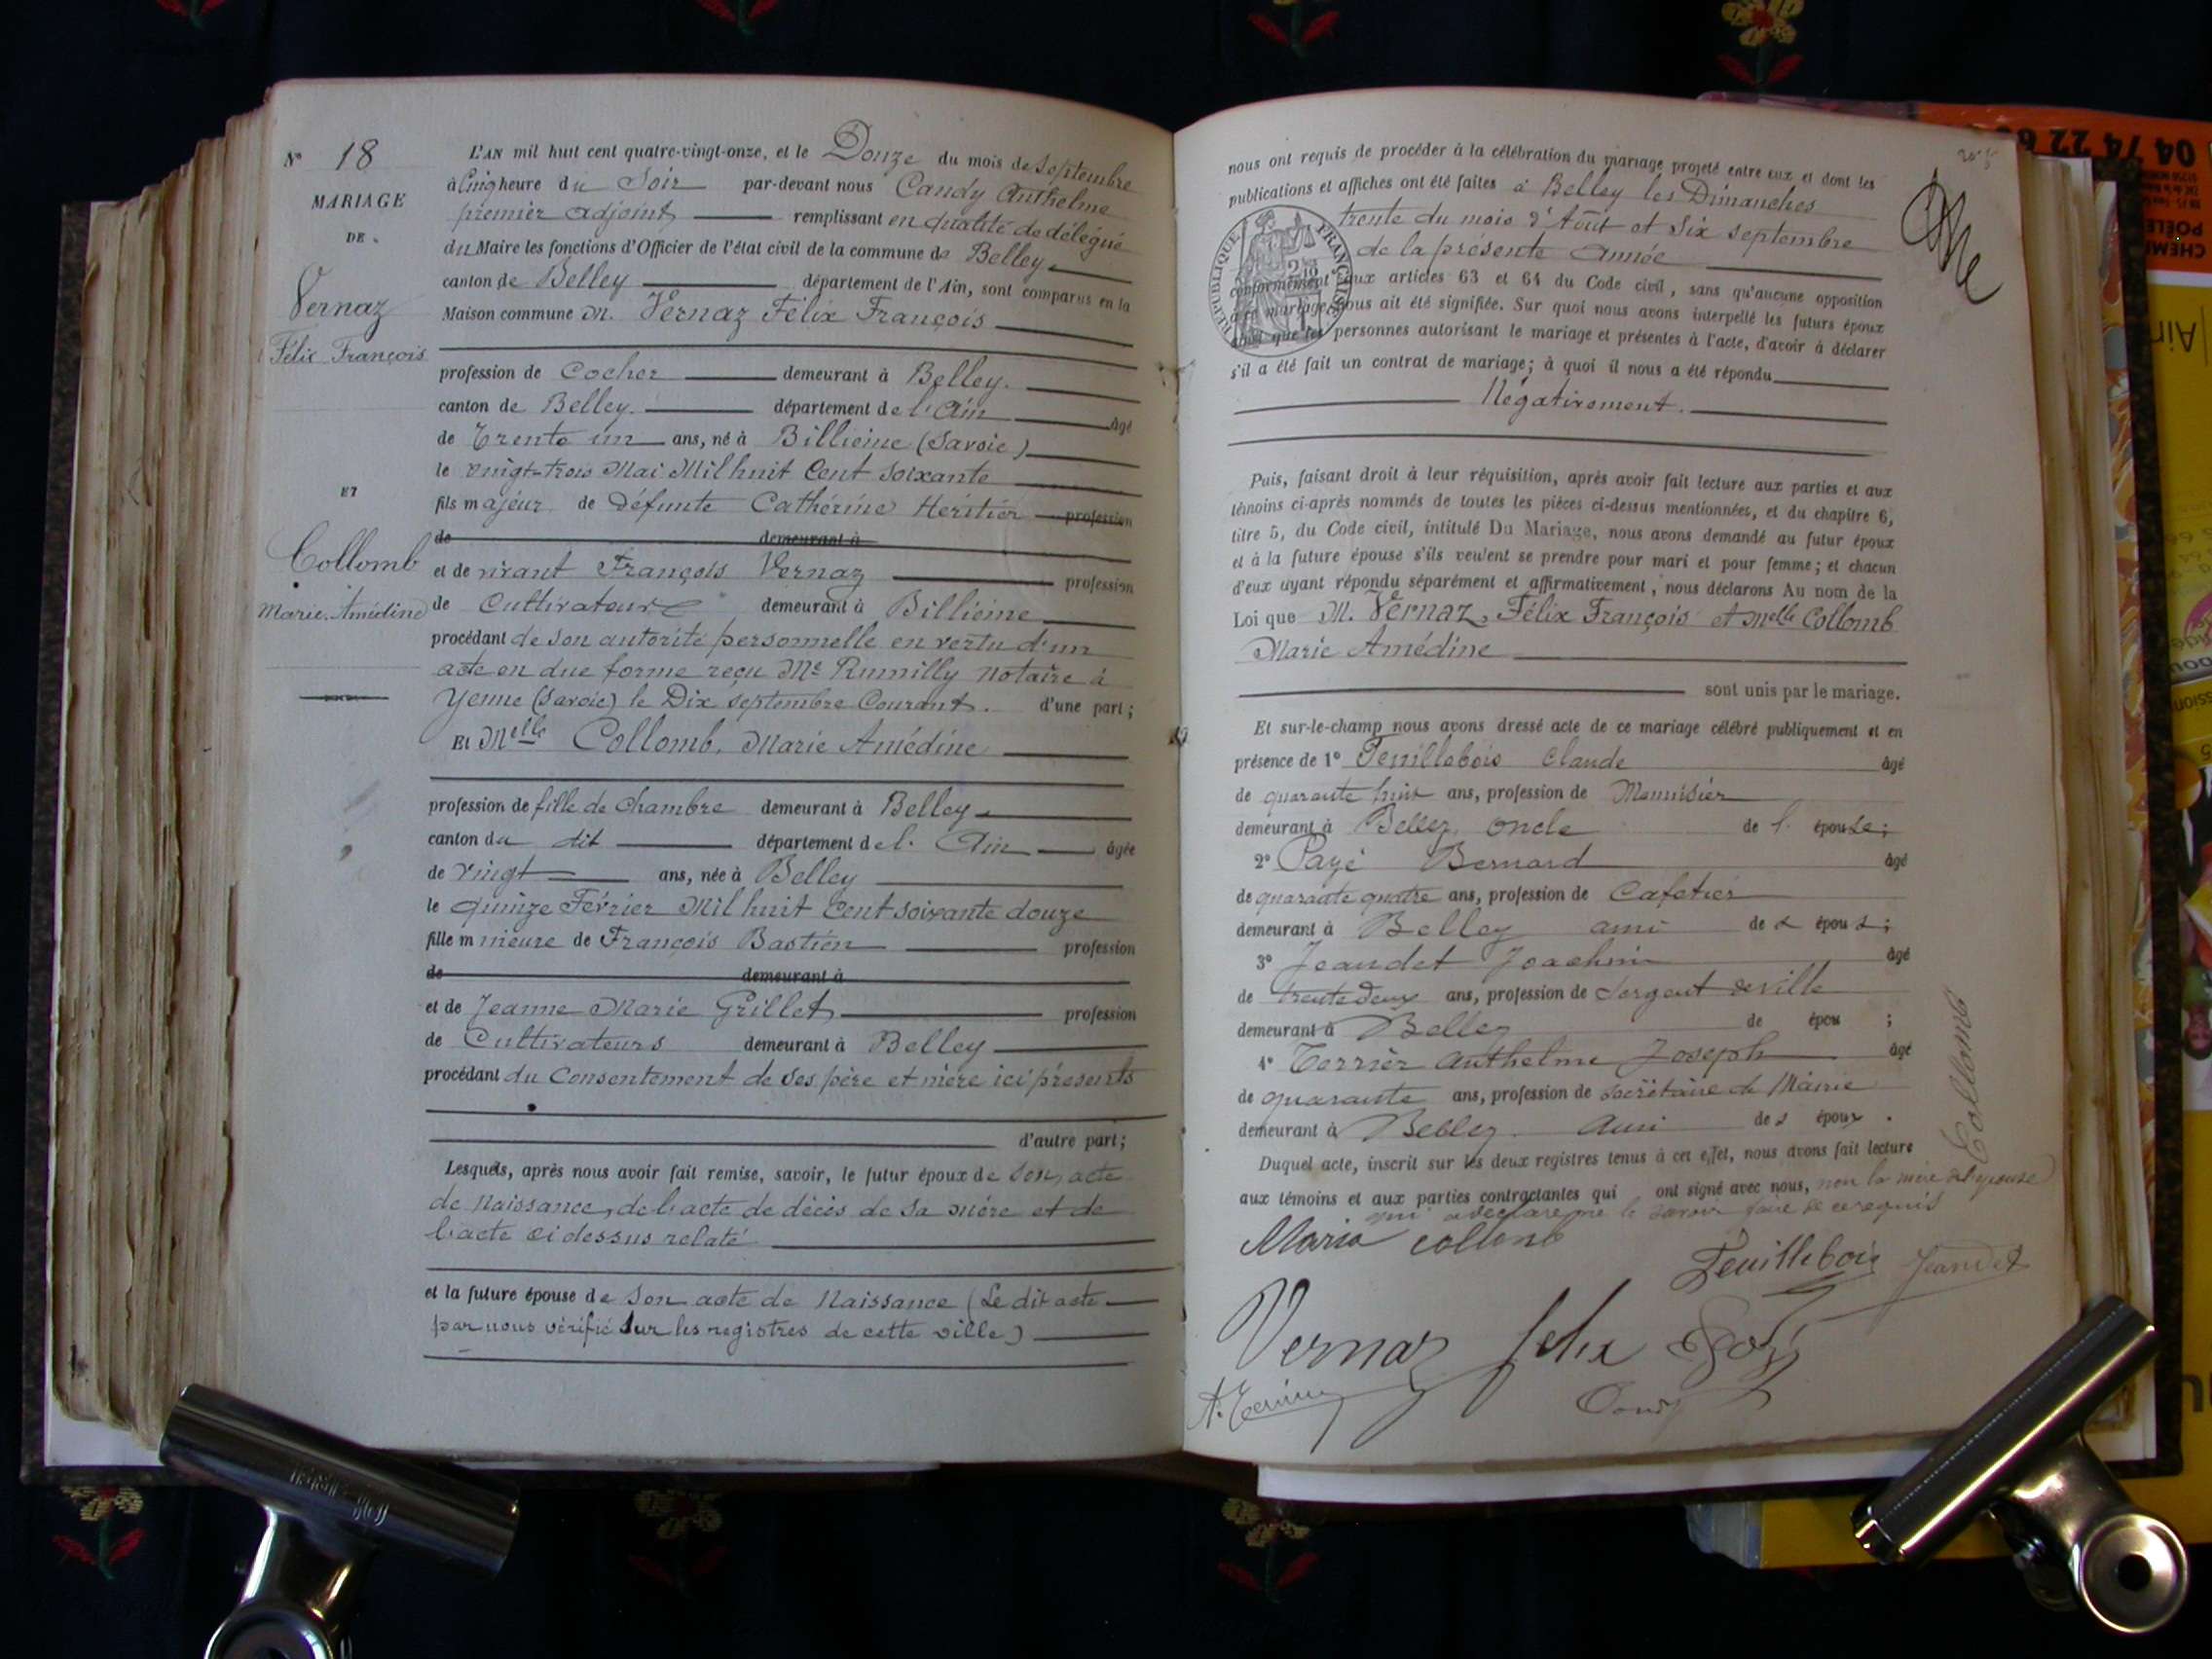 N° 18
MARIAGE
DE
Vernaz
Félix François
ET
Collomb
Marie Amédine
L'AN mil huit cent quatre-vingt-onze, et le Douze du mois de septembre
à Cinq heure du Soir par-devant nous Candy Anthelme
premier adjoint remplissant en qualité de délégué
du Maire les fonctions d'Officier de l'état civil de la commune de Belley
canton de Belley département de l'Ain, sont comparus en la
Maison commune M. Vernaz Félix François
profession de Cocher demeurant à Belley.
canton de Belley. département de l'Ain âgé
de Trente un ans, né à Billième (Savoie)
le vingt-trois Mai Mil huit Cent soixante
fils majeur de défunte Cathérine Héritier profession
de demeurant à
et de vivant François Vernaz profession
de Cultivateur demeurant à Billième
procédant de son autorité personnelle en vertu d'un
acte en due forme reçu Me Rumilly Notaire à
Yenne (Savoie) le Dix septembre Courant. d'une part;
Et Melle Collomb, Marie Amédine
profession de fille de Chambre demeurant à Belley
canton du dit département de l'Ain âgée
de vingt ans, née à Belley
le quinze Février Mil huit Cent soixante douze
fille mineure de François Bastien profession
de demeurant à
et de Jeanne Marie Grillet profession
de Cultivateurs demeurant à Belley
procédant du Consentement de ses père et mère ici présents
d'autre part;
Lesquels, après nous avoir fait remise, savoir, le futur époux de son acte
de Naissance, de l'acte de décès de sa mère et de
l'acte ci dessus relaté
et la future épouse de son acte de Naissance (Le dit acte
par nous vérifié sur les registres de cette ville)
nous ont requis de procéder à la célébration du mariage projeté entre eux et dont les
publications et affiches ont été faites à Belley les Dimanches
trente du mois d'Août et six septembre
de la présente année
RÉPUBLIQUE FRANÇAISE
conformément aux articles 63 et 64 du Code civil, sans qu'aucune opposition
à ce mariage nous ait été signifiée. Sur quoi nous avons interpellé les futurs époux
ainsi que les personnes autorisant le mariage et présentes à l'acte, d'avoir à déclarer
s'il a été fait un contrat de mariage; à quoi il nous a été répondu
Négativement.
Puis, faisant droit à leur réquisition, après avoir fait lecture aux parties et aux
témoins ci-après nommés de toutes les pièces ci-dessus mentionnées, et du chapitre 6,
titre 5, du Code civil, intitulé Du Mariage, nous avons demandé au futur époux
et à la future épouse s'ils veulent se prendre pour mari et pour femme; et chacun
d'eux ayant répondu séparément et affirmativement, nous déclarons Au nom de la
Loi que M. Vernaz, Félix François et Melle Collomb
Marie Amédine
sont unis par le mariage.
Et sur-le-champ nous avons dressé acte de ce mariage célébré publiquement et en
présence de 1° Feuillebois Claude âgé
de quarante huit ans, profession de Menuisier
demeurant à Belley, oncle de l'épouse;
2° Payé Bernard âgé
de quarante quatre ans, profession de Cafetier
demeurant à Belley ami de s épou s;
3° Jeandet Joachim âgé
de trente deux ans, profession de Sergent de ville
demeurant à Belley de épou ;
4° Terrier Anthelme Joseph âgé
de quarante ans, profession de secrétaire de Mairie
demeurant à Belley. Ami de s époux.
Duquel acte, inscrit sur les deux registres tenus à cet effet, nous avons fait lecture
aux témoins et aux parties contractantes qui ont signé avec nous, non la mère de l'épouse
qui a déclaré ne le savoir faire de ce requis
Collomb
Maria collomb
Feuillebois Jeandet
Vernaz felix
A. Terrier
Candy
04 74 22 6
POÊLE
CHEM
Ain